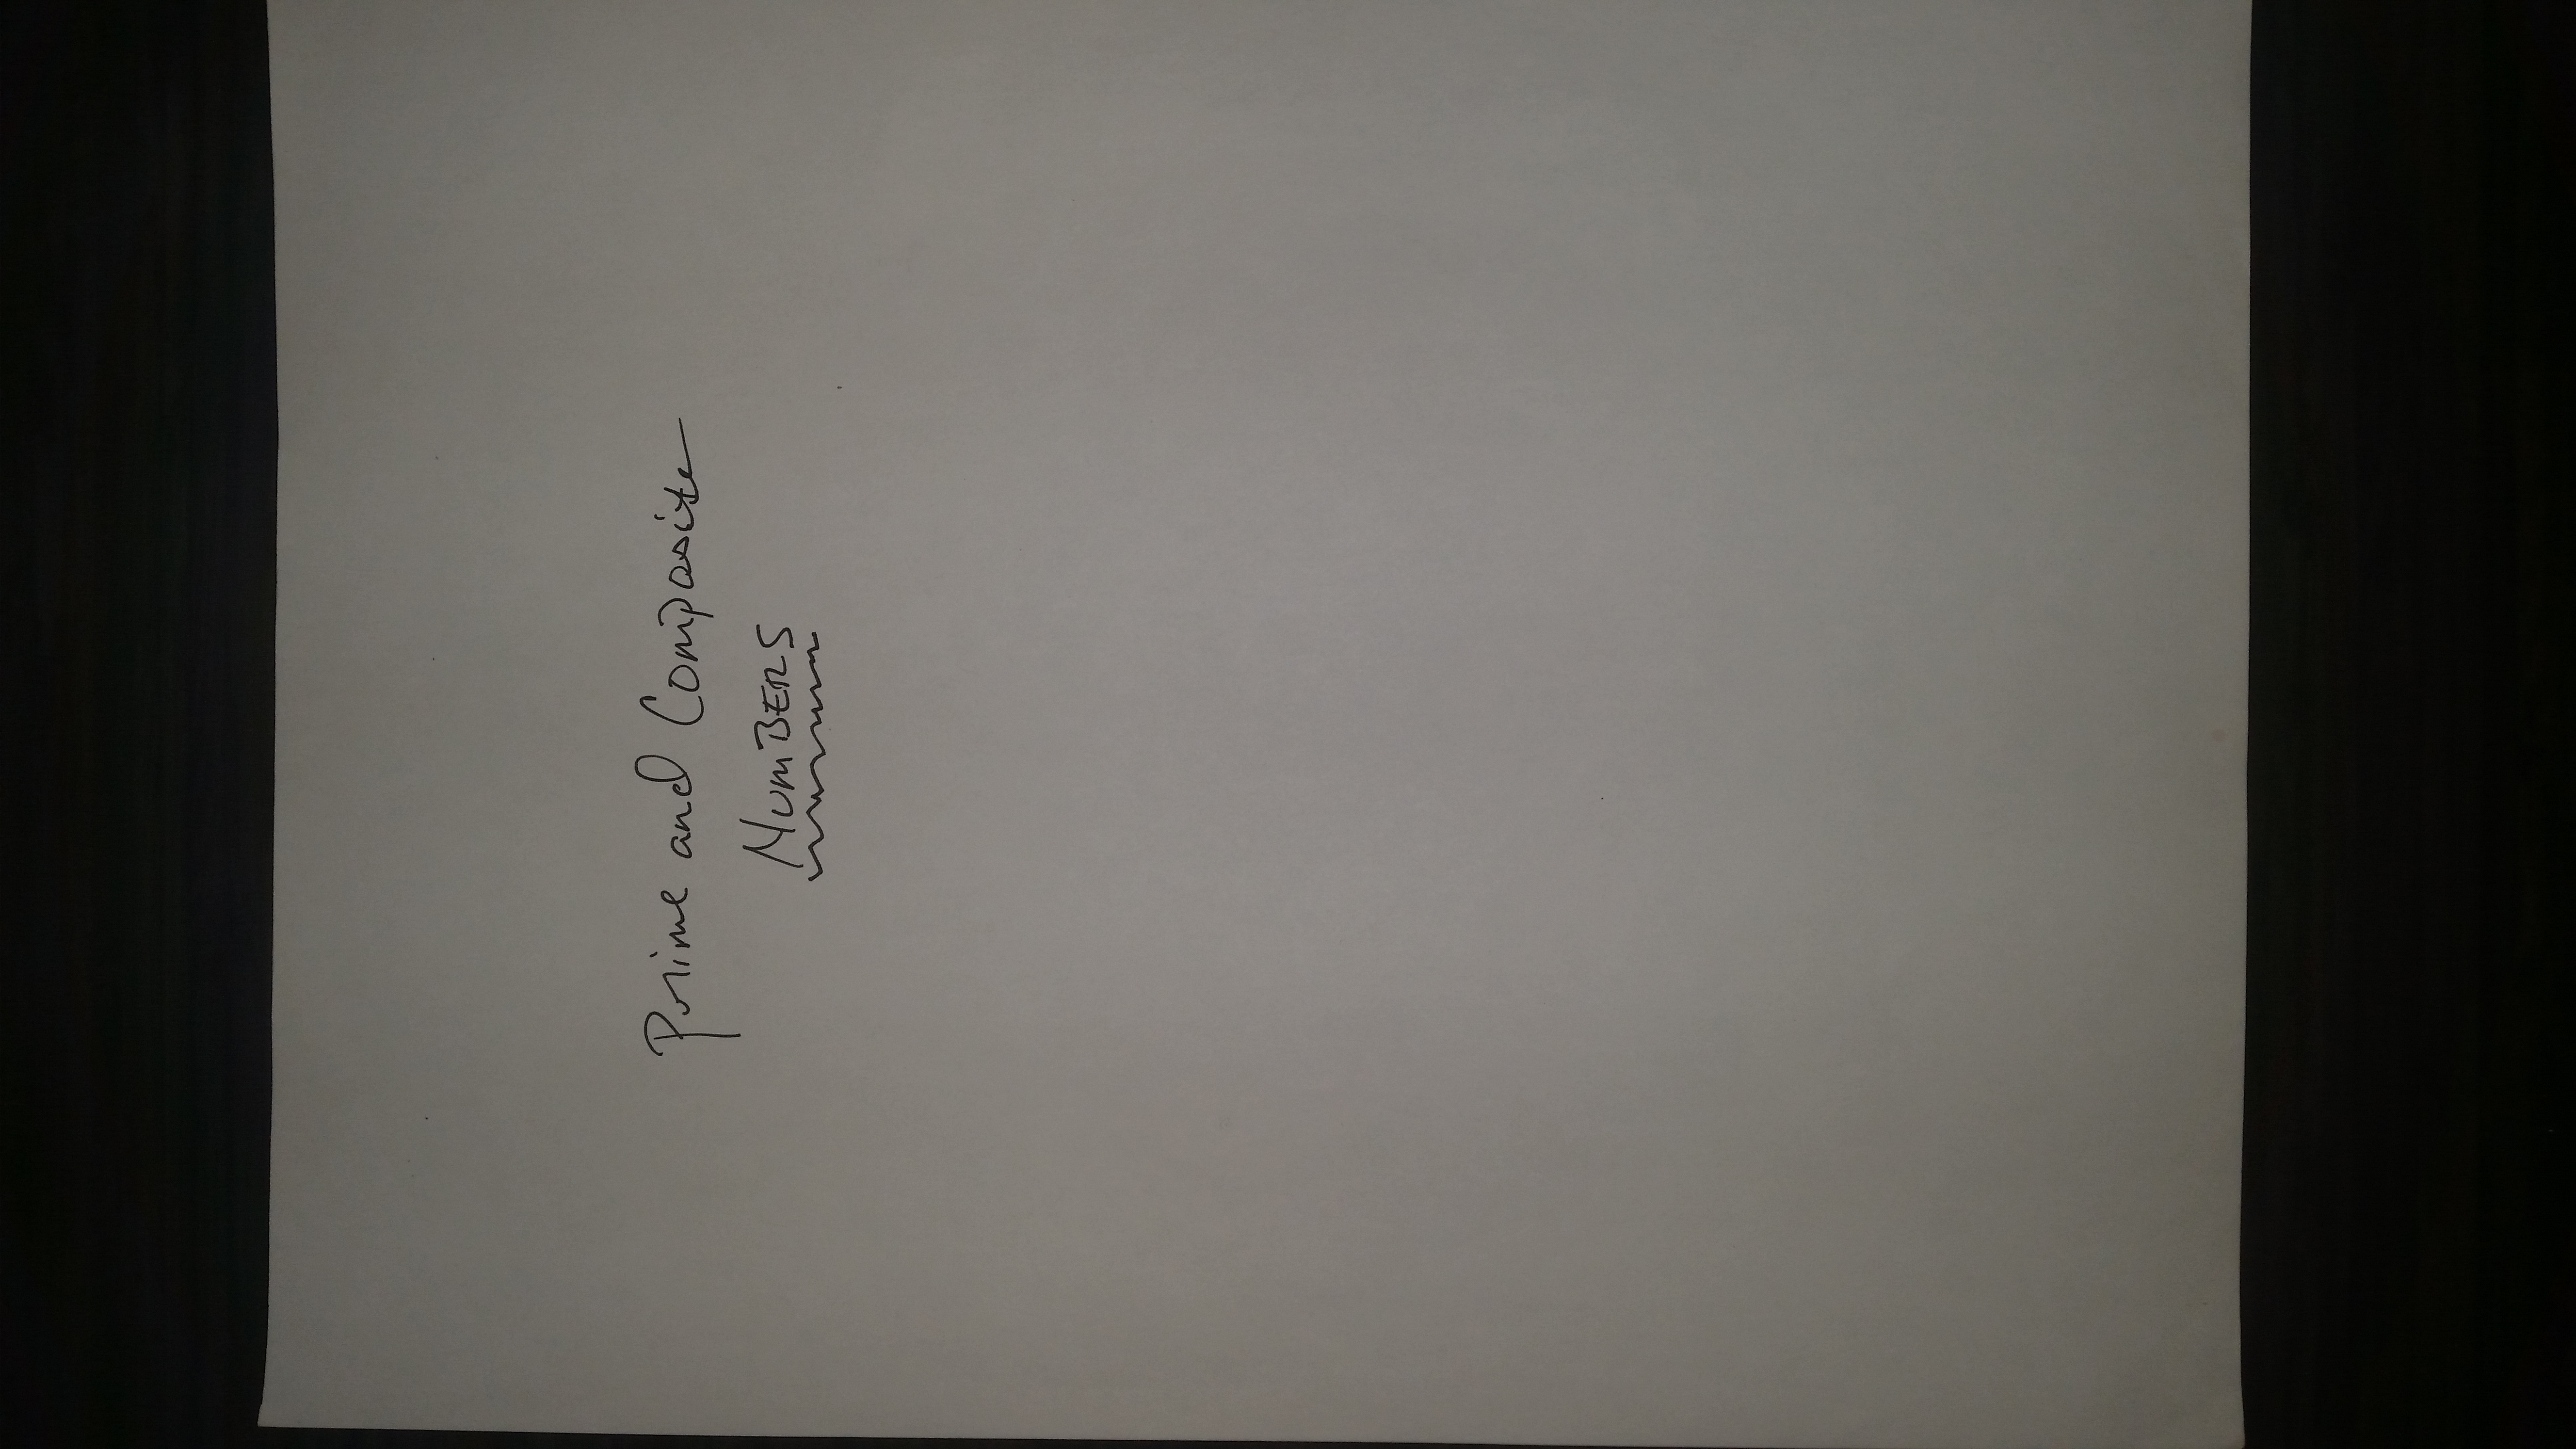 Prime and Composite
NUMBERS